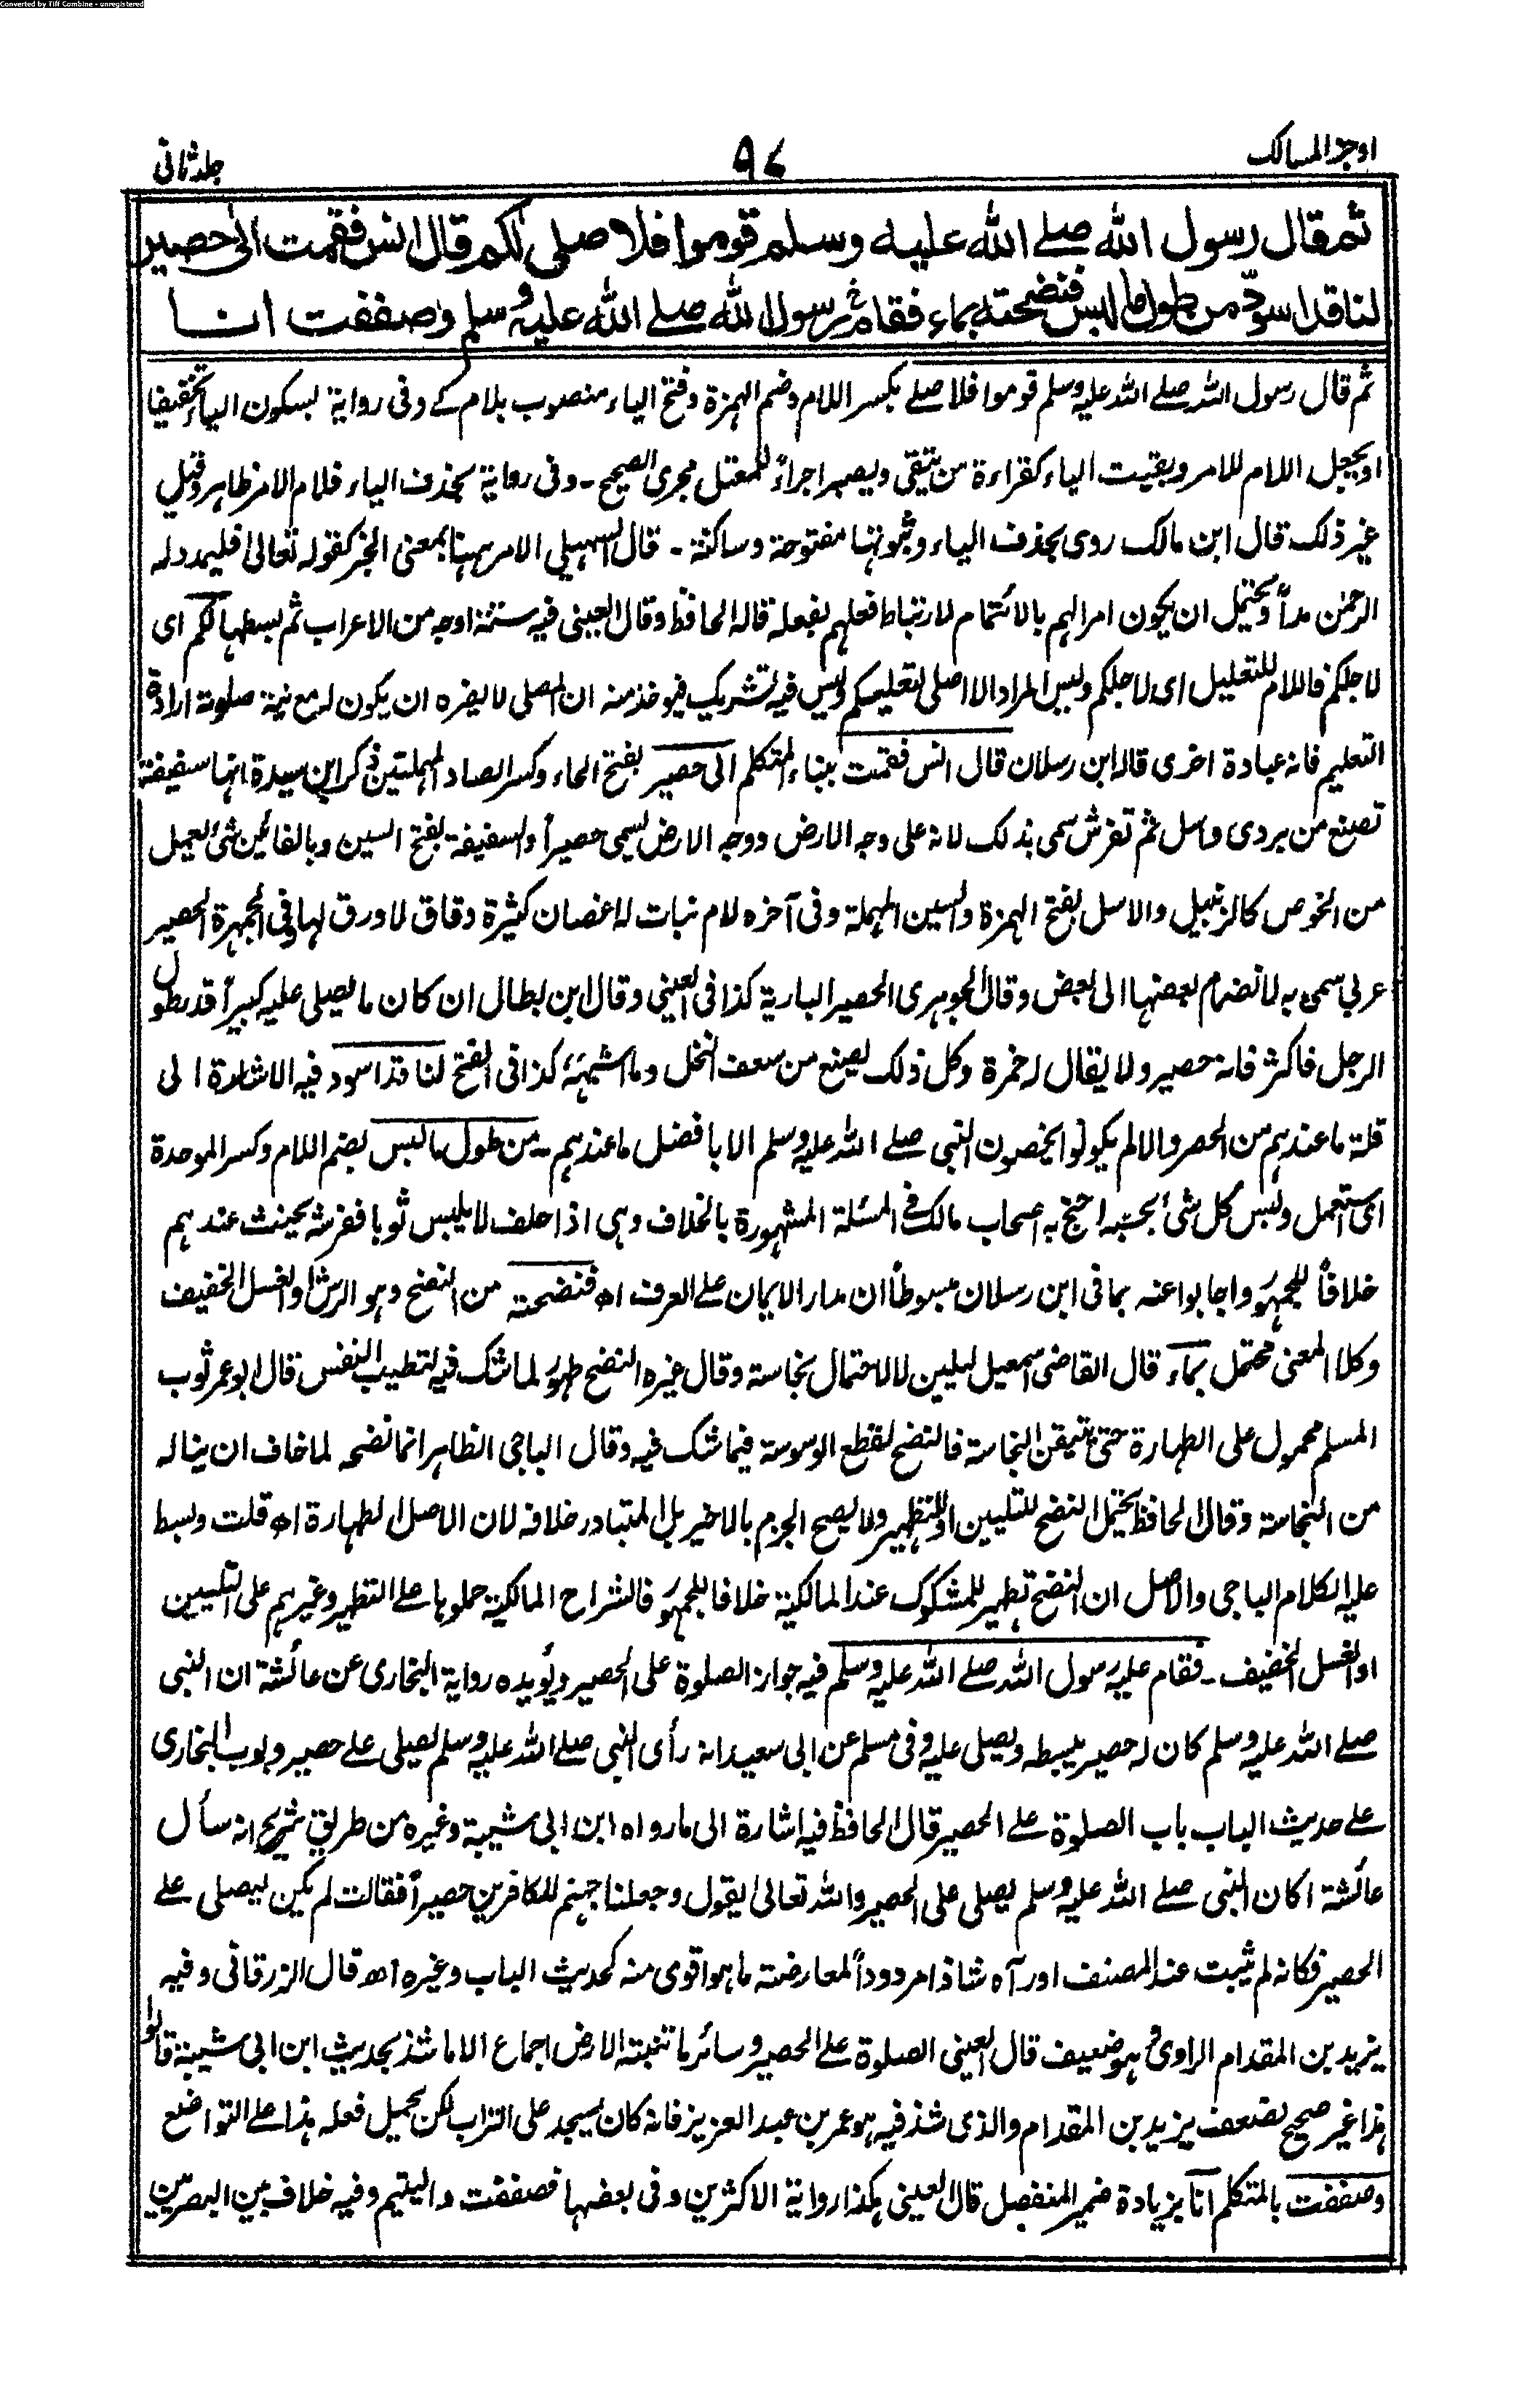 Converted by Tiff Combine - unregistered
اوجز المسالک
۹۷
جلد ثانی
ثم قال رسول الله صلے الله عليه وسلم قوموا فلاصلی لکم قال انس فقمت الی حصیر
لنا قد اسودّ من طول ما لبس فنضحته بماء فقام علیه رسول الله صلے الله علیه وسلم وصففت انا
ثم قال رسول الله صلے الله علیه وسلم قوموا فلاصلے بکسر اللام وضم الهمزة وفتح الیاء منصوب بلام کے وفی روایة بسکون الیاء تخفیفا
او یجعل اللام للامر وبقیت الیاء کقراءة من یتقی ویصبر اجراءً للمعتل مجری الصحیح ۔ وفی روایة بحذف الیاء فلام الامر ظاهر وقیل
غیر ذلک قال ابن مالک روی بحذف الیاء وثبوتها مفتوحة وساکنة ۔ قال السهیلی الامر ههنا بمعنی الخبر کقوله تعالی فلیمدد له
الرحمٰن مداً ویحتمل ان یکون امرا لهم بالائتمام لارتباط فعلهم بفعله قاله الحافظ وقال العینی فیه ستة اوجه من الاعراب ثم بسطها لکم ای
لاجلکم فاللام للتعلیل ای لاجلکم ولیس المراد الا اصلی لتعلیمکم ولیس فیه تشریک فیوخذ منه ان المصلی لا یضره ان یکون له مع نیة صلوته ارادة
التعلیم فانه عبادة اخری قاله ابن رسلان قال انس فقمت ببناء المتکلم الی حصیر بفتح الحاء وکسر الصاد المهملتین ذکر ابن سیدة انها سفیفة
تصنع من بردی واسل ثم تفرش سمی بذلک لانه علی وجه الارض ووجه الارض یسمی حصیراً والسفیفة بفتح السین وبالفائین شئ یعمل
من الخوص کالزنبیل والاسل بفتح الهمزة والسین المهملة وفی آخره لام نبات له اغصان کثیرة دقاق لا ورق لها وفی الجمهرة الحصیر
عربی سمی به لانضمام بعضها الی بعض وقال الجوهری الحصیر الباریة کذا فی العینی وقال ابن بطال ان کان ما یصلی علیه کبیراً قدر طول
الرجل فاکثر فانه حصیر ولا یقال له خمرة وکل ذلک یصنع من سعف النخل وما اشبهه کذا فی الفتح لنا قد اسود فیه الاشارة الی
قلة ما عندهم من الحصر والا لم یکونوا یخصون النبی صلے الله علیه وسلم الا بافضل ما عندهم ۔ من طول ما لبس بضم اللام وکسر الموحدة
ای استعمل ولبس کل شئ بحسبه احتج به اصحاب مالک فی المسئلة المشهورة بالخلاف وهی اذا حلف لا یلبس ثوبا ففرشه یحنث عندهم
خلافاً للجمهور واجابوا عنه بما فی ابن رسلان مبسوطاً ان مدار الایمان علے العرف اه فنضحته من النضح وهو الرش او الغسل الخفیف
وکلا المعنی محتمل بماء قال القاضی اسمعیل لیلین لا لاحتمال نجاسة وقال غیره النضح طهور لما شک فیه لتطیب النفس قال ابو عمر ثوب
المسلم محمول علی الطهارة حتی تتیقن النجاسة فالنضح لقطع الوسوسة فیما شک فیه وقال الباجی الظاهر انما نضحه لما خاف ان یناله
من النجاسة وقال الحافظ یحتمل النضح للتلیین او للتطهیر ولا یصح الجزم بالاخیر بل المتبادر خلافه لان الاصل الطهارة اه قلت وبسط
علیه الکلام الباجی والاصل ان النضح تطهیر للمشکوک عند المالکیة خلافا للجمهور فالشراح المالکیة حملوها علے التطهیر وغیرهم علی التلیین
او الغسل الخفیف ۔ فقام علیه رسول الله صلے الله علیه وسلم فیه جواز الصلوة علی الحصیر ویؤیده روایة البخاری عن عائشة ان النبی
صلے الله علیه وسلم کان له حصیر یبسطه ویصلی علیه وفی مسلم عن ابی سعید انه رأی النبی صلے الله علیه وسلم یصلی علے حصیر وبوب البخاری
علے حدیث الباب باب الصلوة علے الحصیر قال الحافظ فیه اشارة الی ما رواه ابن ابی شیبة وغیره من طریق شریح انه سأل
عائشة اکان النبی صلے الله علیه وسلم یصلی علی الحصیر والله تعالیٰ یقول وجعلنا جهنم للکافرین حصیراً فقالت لم یکن لیصلی علے
الحصیر فکانه لم یثبت عند المصنف او رآه شاذا مردوداً لمعارضته ما هو اقوی منه کحدیث الباب وغیره اه قال الزرقانی وفیه
یزید بن المقدام الراوی وهو ضعیف قال العینی الصلوة علے الحصیر وسائر ما تنبته الارض اجماع الا ما شذ بحدیث ابن ابی شیبة قالوا
هذا غیر صحیح لضعف یزید بن المقدام والذی شذ فیه هو عمر بن عبد العزیز فانه کان یسجد علی التراب لکن یحمل فعله هذا علے التواضع
وصففت بالمتکلم انا بزیادة ضمیر المنفصل قال العینی هکذا روایة الاکثرین وفی بعضها فصففت والیتیم وفیه خلاف بین البصریین